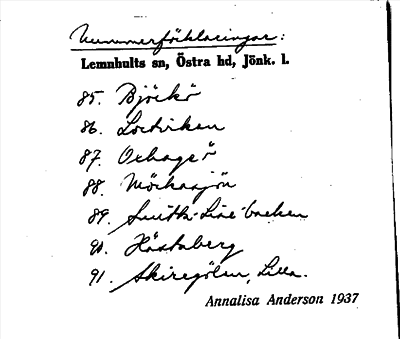 Nummerförklaringar:
Lemnhults sn, Östra hd, Jönk. l.
85. Björkö
86. Lortviken
87. Oxhagsö
88. Möckasjön
89. Smith-Line-backen
90. Hästaberg
91. Skiregölen, Lilla.
Annalisa Anderson 1937